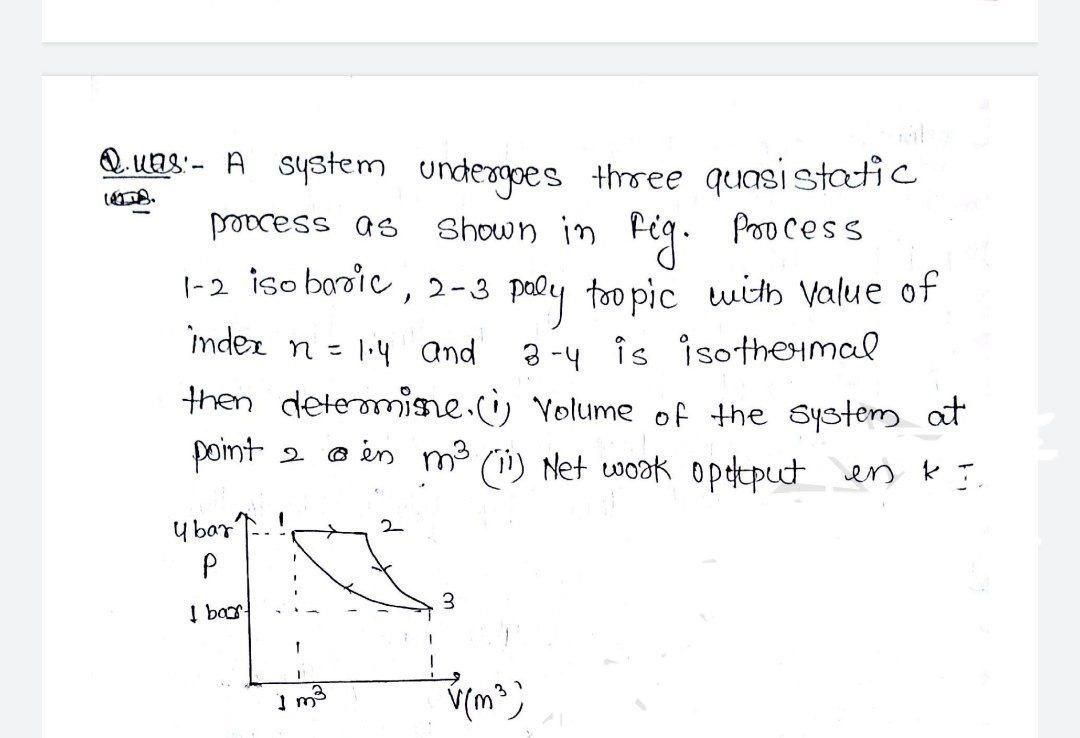 Q.ues:- A system undergoes three quasistatic
process as shown in fig. Process
1-2 isobaric, 2-3 poly tropic with value of
index n = 1.4 and 3-4 is isothermal
then determine.(i) Volume of the system at
point 2 in m³ (ii) Net work output in k J.
4 bar 1 2
P
1 bar 3
1 m³ V(m³)